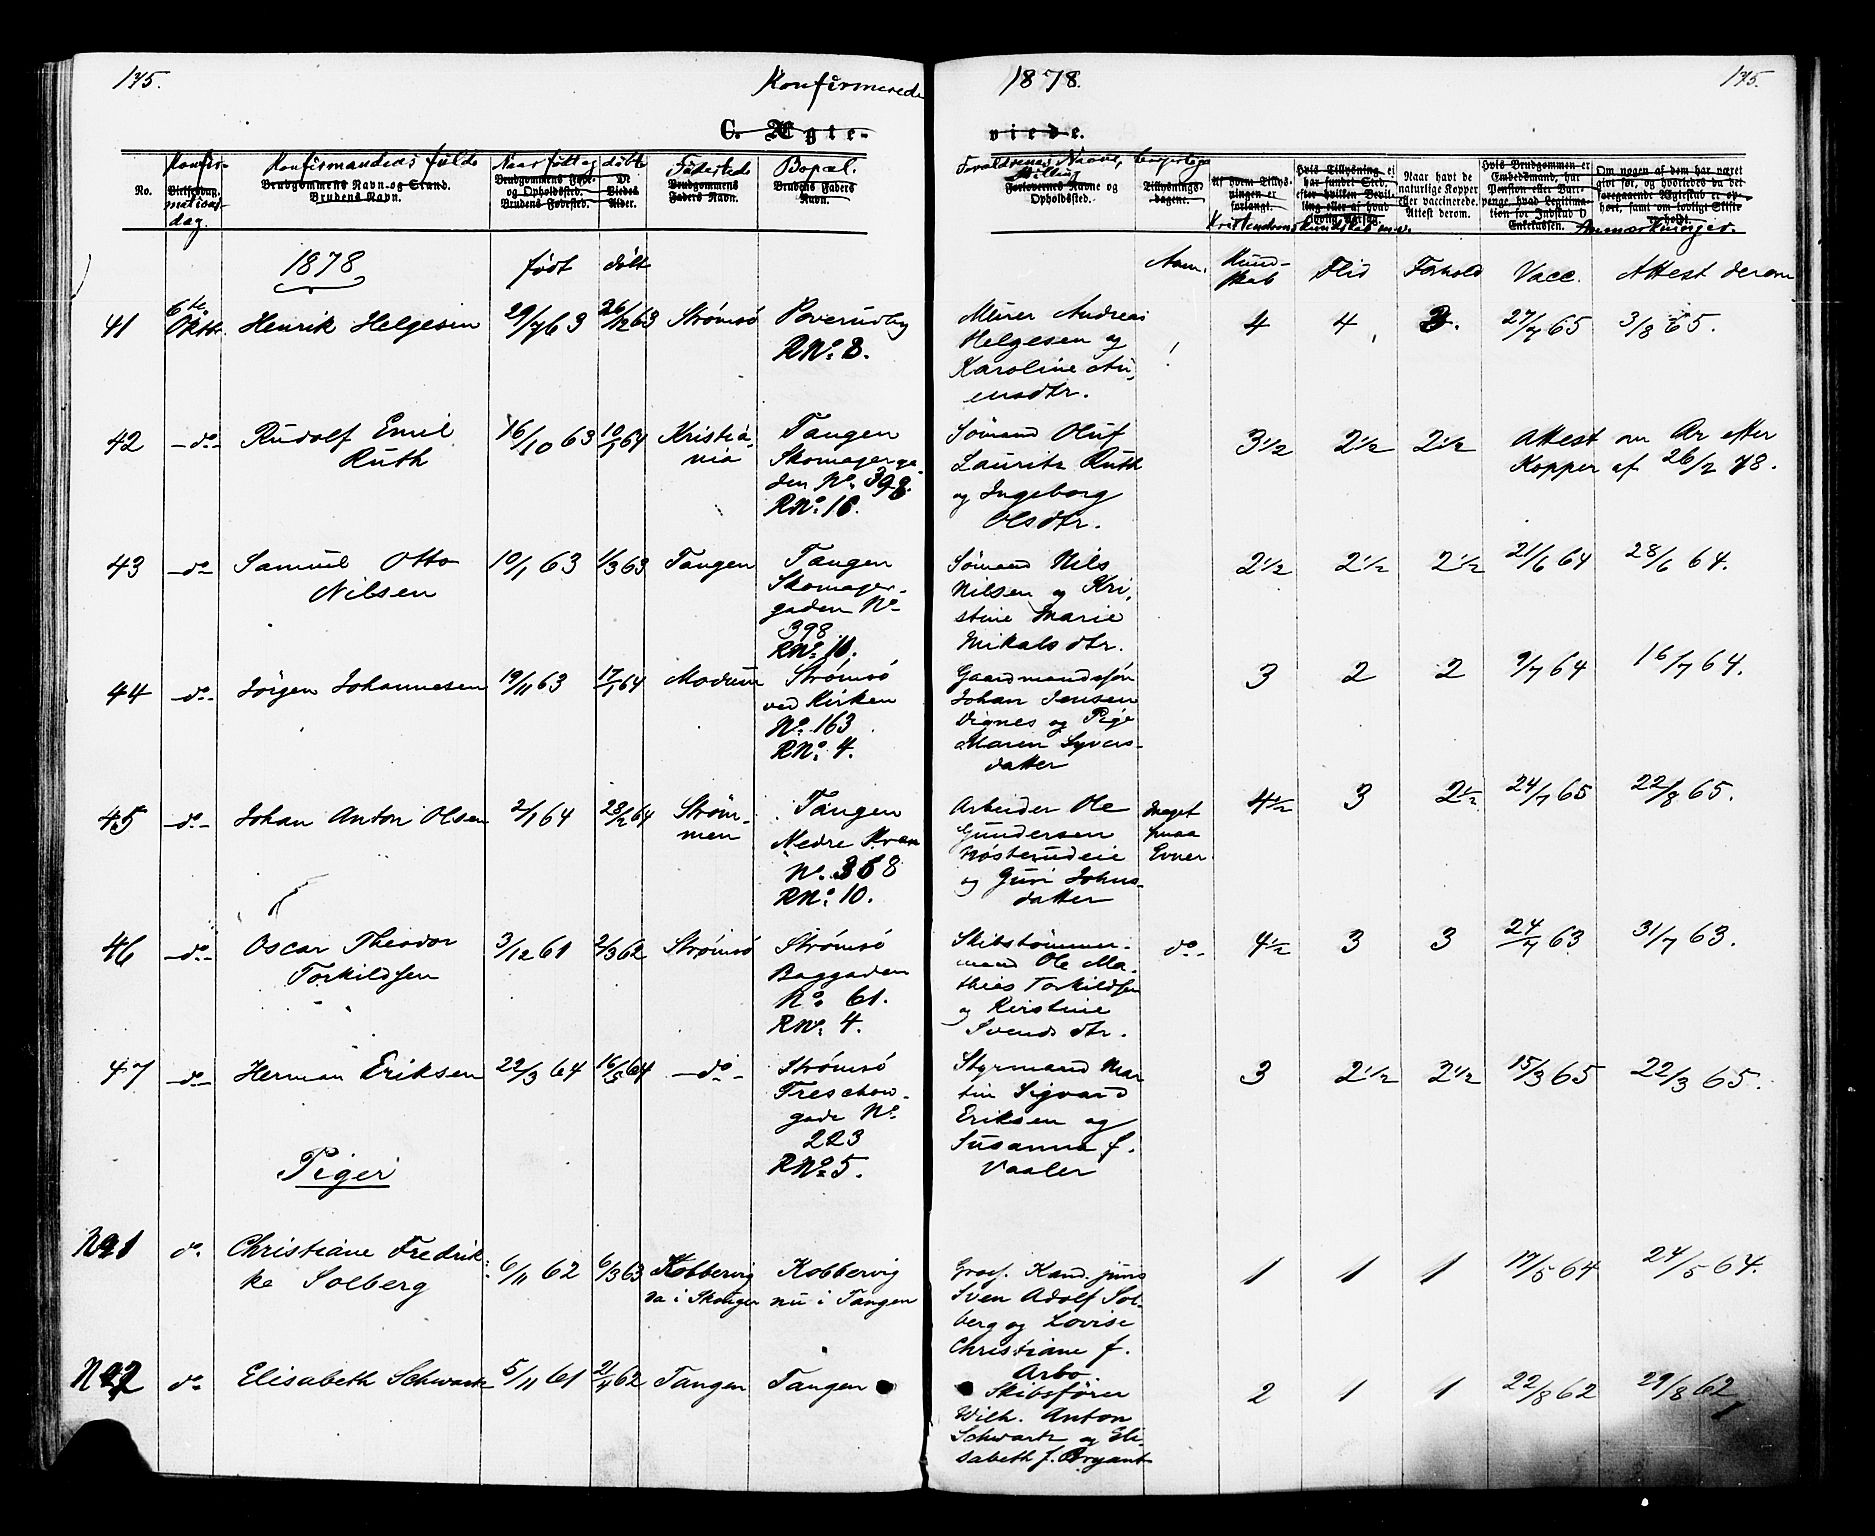 175.
Konfirmerede
1878.
175.
C. Ægte-
viede.
No.
Konfir-
mations-
dag.
Konfirmandens fulde
Brudgommens Navn og Stand.
Brudens Navn.
Naar født og døbt
Brudgommens Føde-
og Opholdssted.
Brudens Fødested.
De
Viedes
Alder.
Fødested
Brudgommens
Faders Navn.
Bopæl.
Brudens Faders
Navn.
Forældrenes Navne, borgerlige
Stilling
Forlovernes Navne og
Opholdssted.
Tillysnings-
dagene.
Kristendomskundskab m.v.
Naar havt de
naturlige Kopper
eller vaccinerede.
Attest derom.
Hvis Brudgommen er
Embedsmand, har
Enkekassen.
Om nogen af dem har været
gift før, og hvorledes da det
Anmærkninger.
1878
født
døbt
Anm.
Kund-
skab
Flid
Forhold
Vacc.
Attest derom
41
6te
Oktr.
Henrik Helgesen
29/7 63
26/12 63
Strømsø
Poverudby
RNo: 8.
Murer Andreas
Helgesen og
Karoline An-
ensdtr.
4
4
3.
27/7 65
3/8 65.
42
-do-
Rudolf Emil
Ruth
16/10 63
10/1 64
Kristia-
nia
Tangen
Skomagerga-
den No. 398.
RNo: 10.
Sømand Oluf
Lauritz Ruth
og Ingeborg
Olsdtr.
3 1/2
2 1/2
2 1/2
Attest om Ar efter
Kopper af 26/2 78.
43
-do-
Samuel Otto
Nilsen
10/1 63
1/3 63
Tangen
Tangen
Skomager-
gaden No
398
RNo: 10.
Sømand Nils
Nilsen og Kri-
stine Marie
Mikalsdtr.
2 1/2
2 1/2
2 1/2
21/6 64
28/6 64.
44
-do-
Jörgen Johannesen
19/11 63
17/1 64
Modum
Strømsø
ved Kirken
No. 163
RNo: 4.
Gaardmandssøn
Johan Jensen
Vignes og Pige
Maren Syvers-
datter
3
2
2
9/7 64
16/7 64.
45
-do-
Johan Anton Olsen
2/1 64
28/2 64
Strøm-
men
Tangen
Nedre Kvæn
No. 368
RNo: 10.
Arbeider Ole
Gundersen
Høsterudeie
og Guri Johns-
datter
Meget
smaa
Evner
4 1/2
3
2 1/2
24/7 65
22/8 65.
46
-do-
Oscar Theodor
Torkildsen
3/12 61
2/3 62
Strømsø
Strømsø
Baggaden
No. 61.
RNo: 4.
Skibstømmer-
mand Ole Ma-
thies Torkildsen
og Kirstine
Svendsdtr.
do-
4 1/2
3
3
24/7 63
31/7 63.
47
-do-
Herman Eriksen
22/3 64
16/5 64
-do-
Strømsø
Treschow-
gade No.
223
RNo: 5.
Styrmand Mar
tin Sigvard
Eriksen og
Susanna f.
Vaaler
3
2 1/2
2 1/2
15/3 65
22/3 65.
Piger
No 1
do.
Christiane Fredrik-
ke Solberg
6/11 62
6/3 63
Kobbervig
da i Skouger
Kobbervig
nu i Tangen
Groc. Kand. juris
Sven Adolf Sol-
berg og Lovise
Christiane f.
Arbo.
1
1
1
17/5 64
24/5 64.
No 2
do
Elisabeth Schwartz
5/11 61
21/4 62
Tangen
Tangen
Skibsfører
Wilh. Anton
Schwartz og Eli-
sabeth f. Bryant
2
1
1
22/8 62
29/8 62